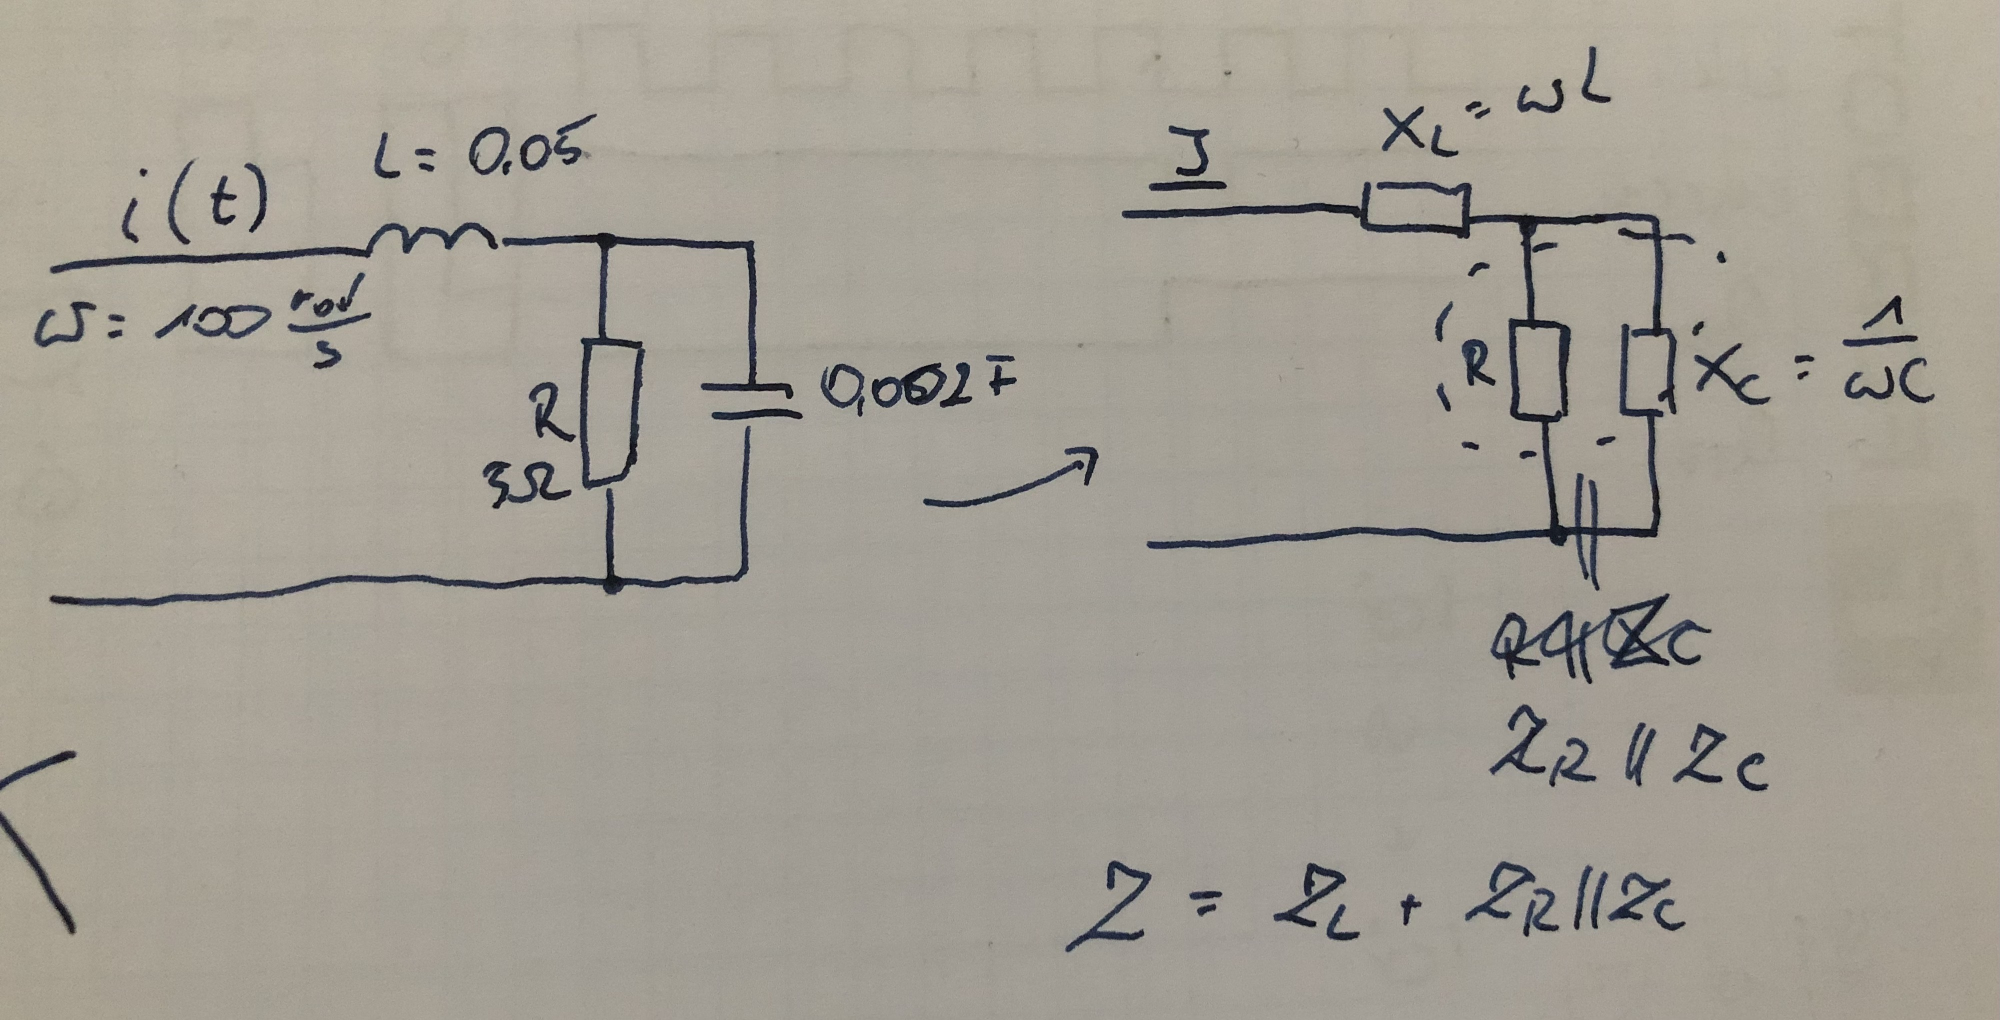 L = 0,05
i(t)
ω = 100 rad/s
R
3Ω
0,002 F
I
X_L = ωL
R
X_C = 1/ωC
Z_R || Z_C
Z = Z_L + Z_R || Z_C